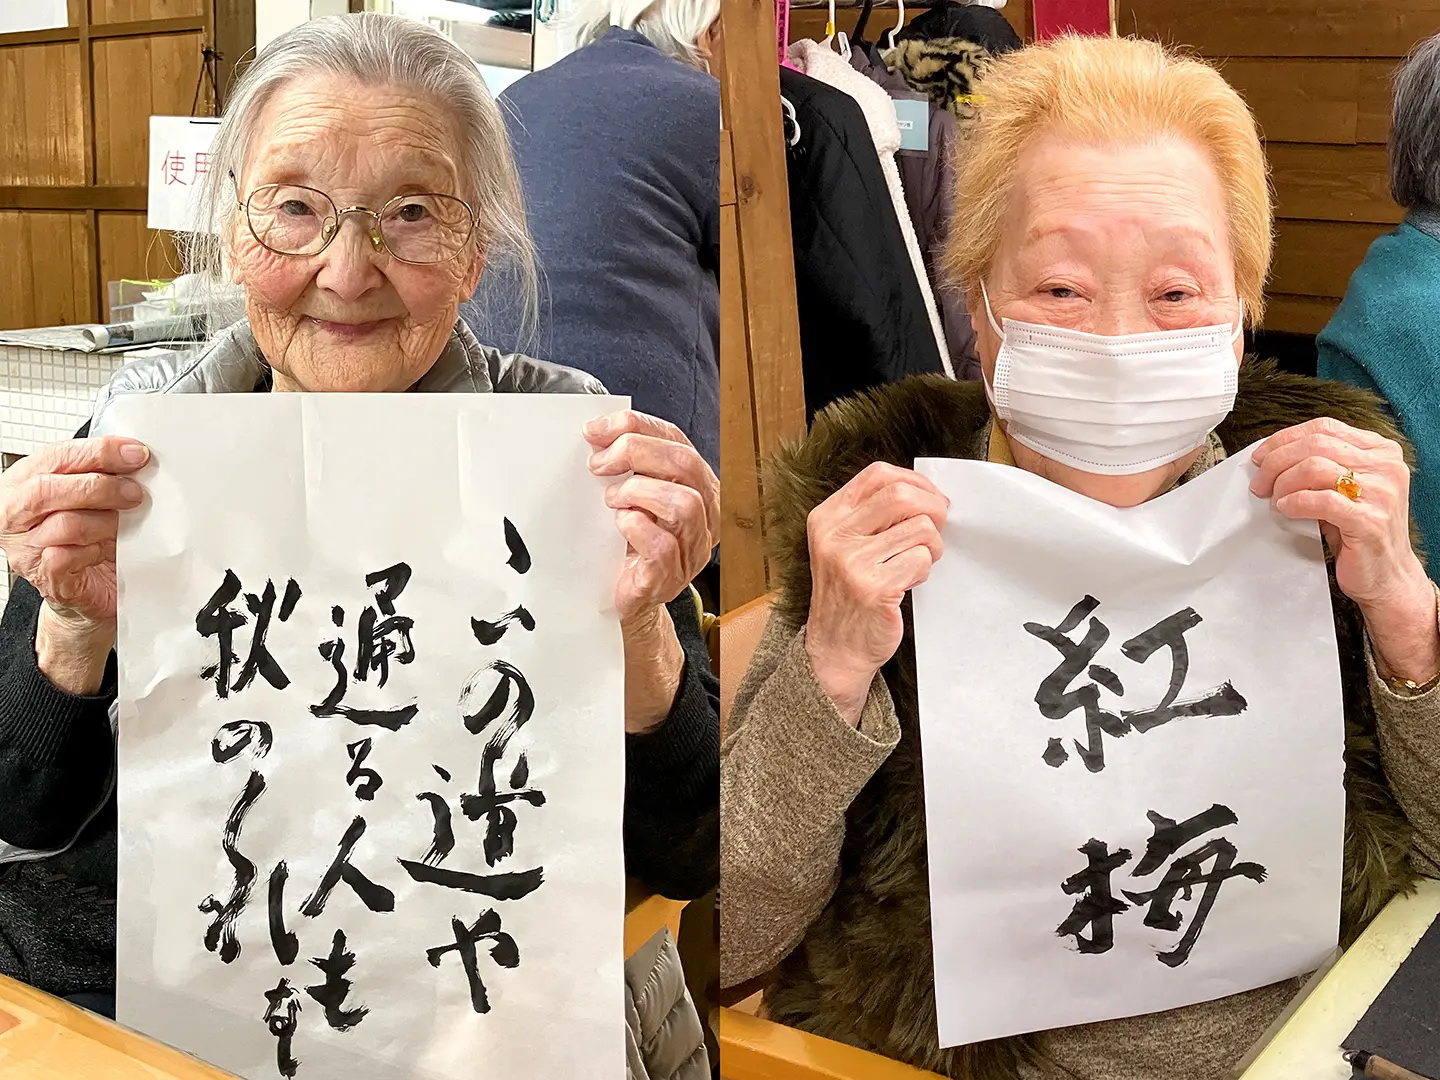 使用
この道や
通る人も
秋のくれ
紅梅